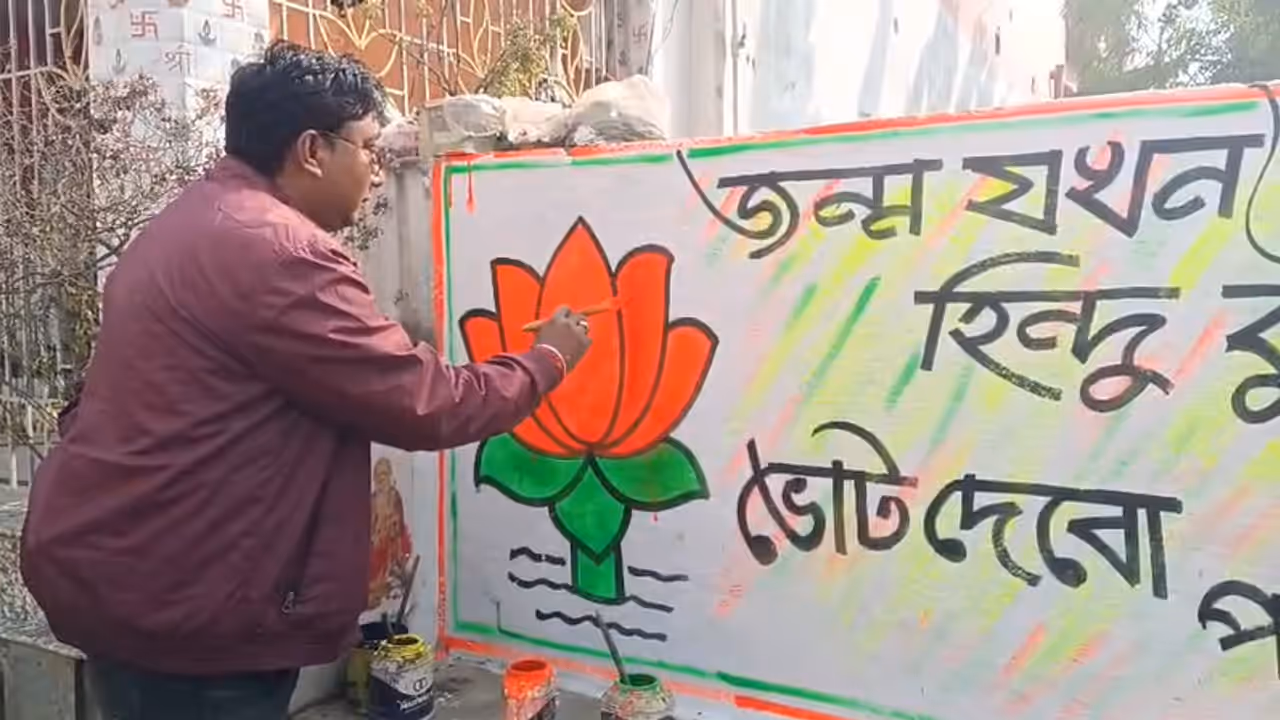 জন্ম যখন
হিন্দু
ভোট দেবো
শ্রী